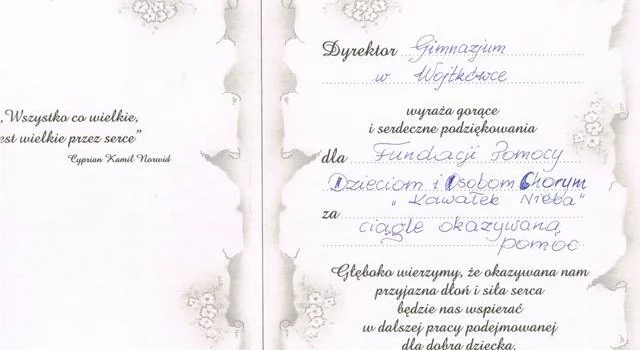 „Wszystko co wielkie,
est wielkie przez serce”
Cyprian Kamil Norwid
Dyrektor Gimnazjum
w Wojtkówce
wyraża gorące
i serdeczne podziękowania
dla Fundacji Pomocy
Dzieciom i Osobom Chorym
"Kawałek Nieba"
za ciągle okazywaną
pomoc
Głęboko wierzymy, że okazywana nam
przyjazna dłoń i siła serca
będzie nas wspierać
w dalszej pracy podejmowanej
dla dobra dziecka.